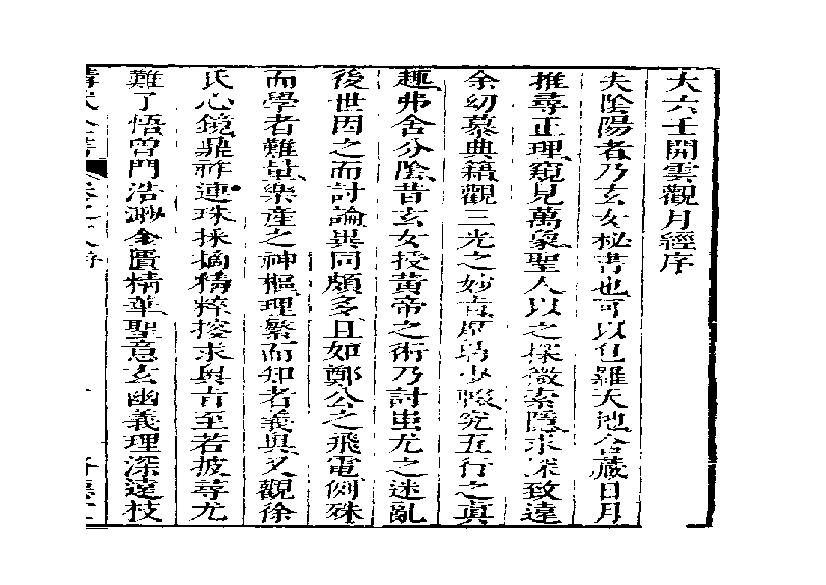 大六壬開雲觀月經序
夫陰陽者乃玄女秘書也可以包羅天地含藏日月
推尋正理窺見萬象聖人以之探微索隱求深致遠
余幼慕典籍觀三光之妙旨居易少輟究五行之眞
趣弗舍分陰昔玄女授黃帝之術乃討蚩尤之迷亂
後世因之而討論異同頗多且如鄭公之飛電例殊
而學者難量樂產之神樞理繁而知者義與又觀徐
氏心鏡鼎祚連珠採摘精粹搜求奧古至若披尋尤
難了悟曾門浩渺金匱精華聖意玄幽義理深遠枝